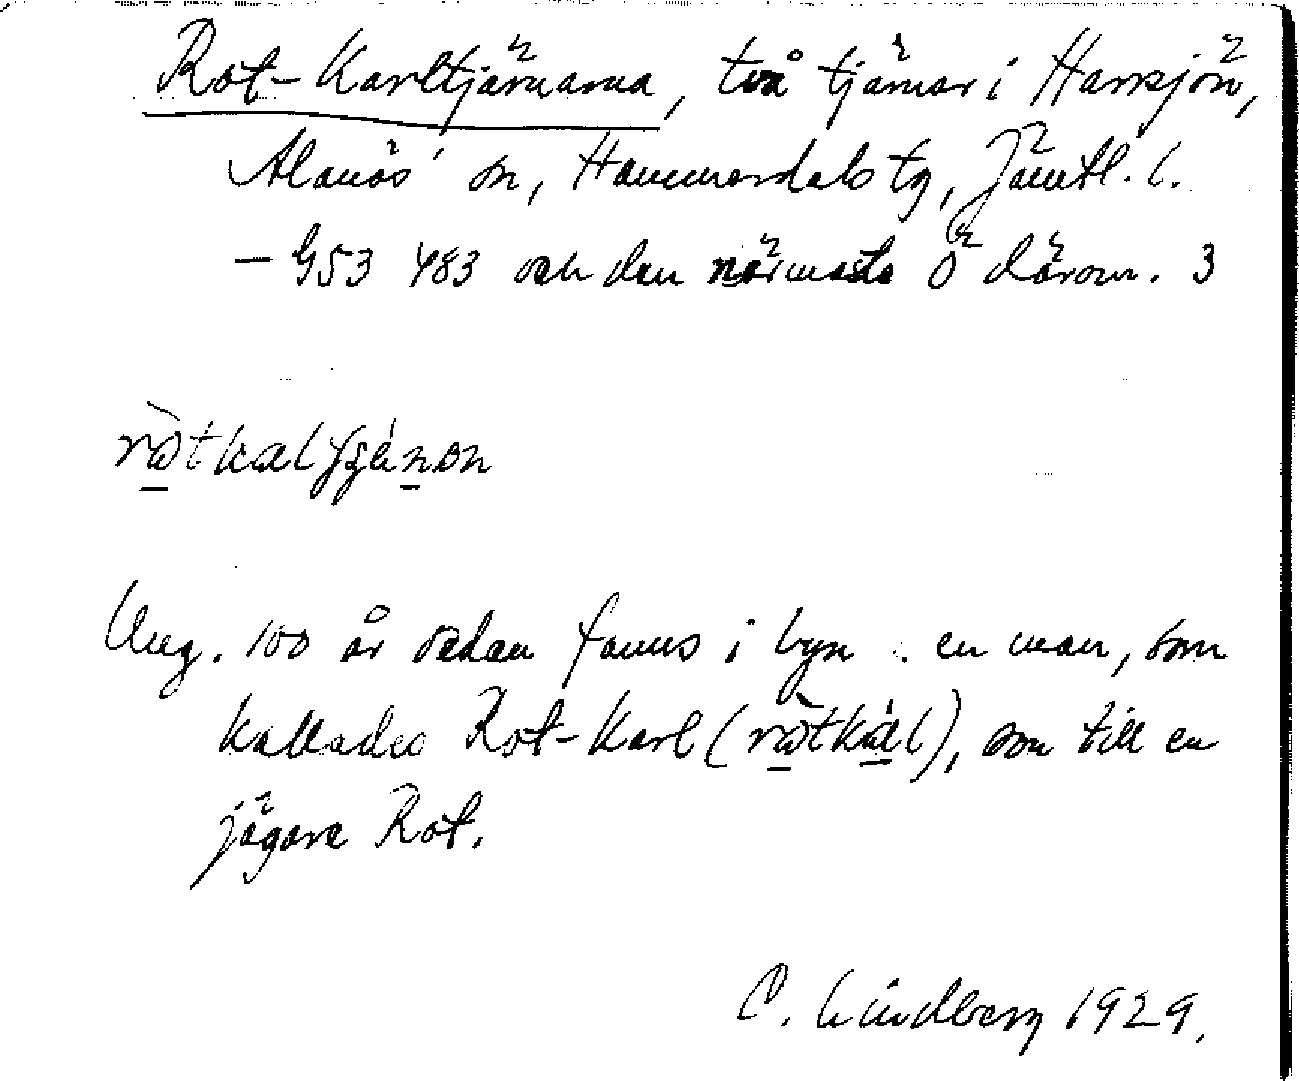 Rot-Karltjärnarna, två tjärnar i Harrsjön,
Alanäs' sn, Hammerdals tg, Jämtl. l.
– G53 483 och den närmaste Ö därom. 3
Ung. 100 år sedan fanns i byn en man, som
kallades Rot-Karl (ròtkàl), son till en
jägare Rot.
C. Lindberg 1929.